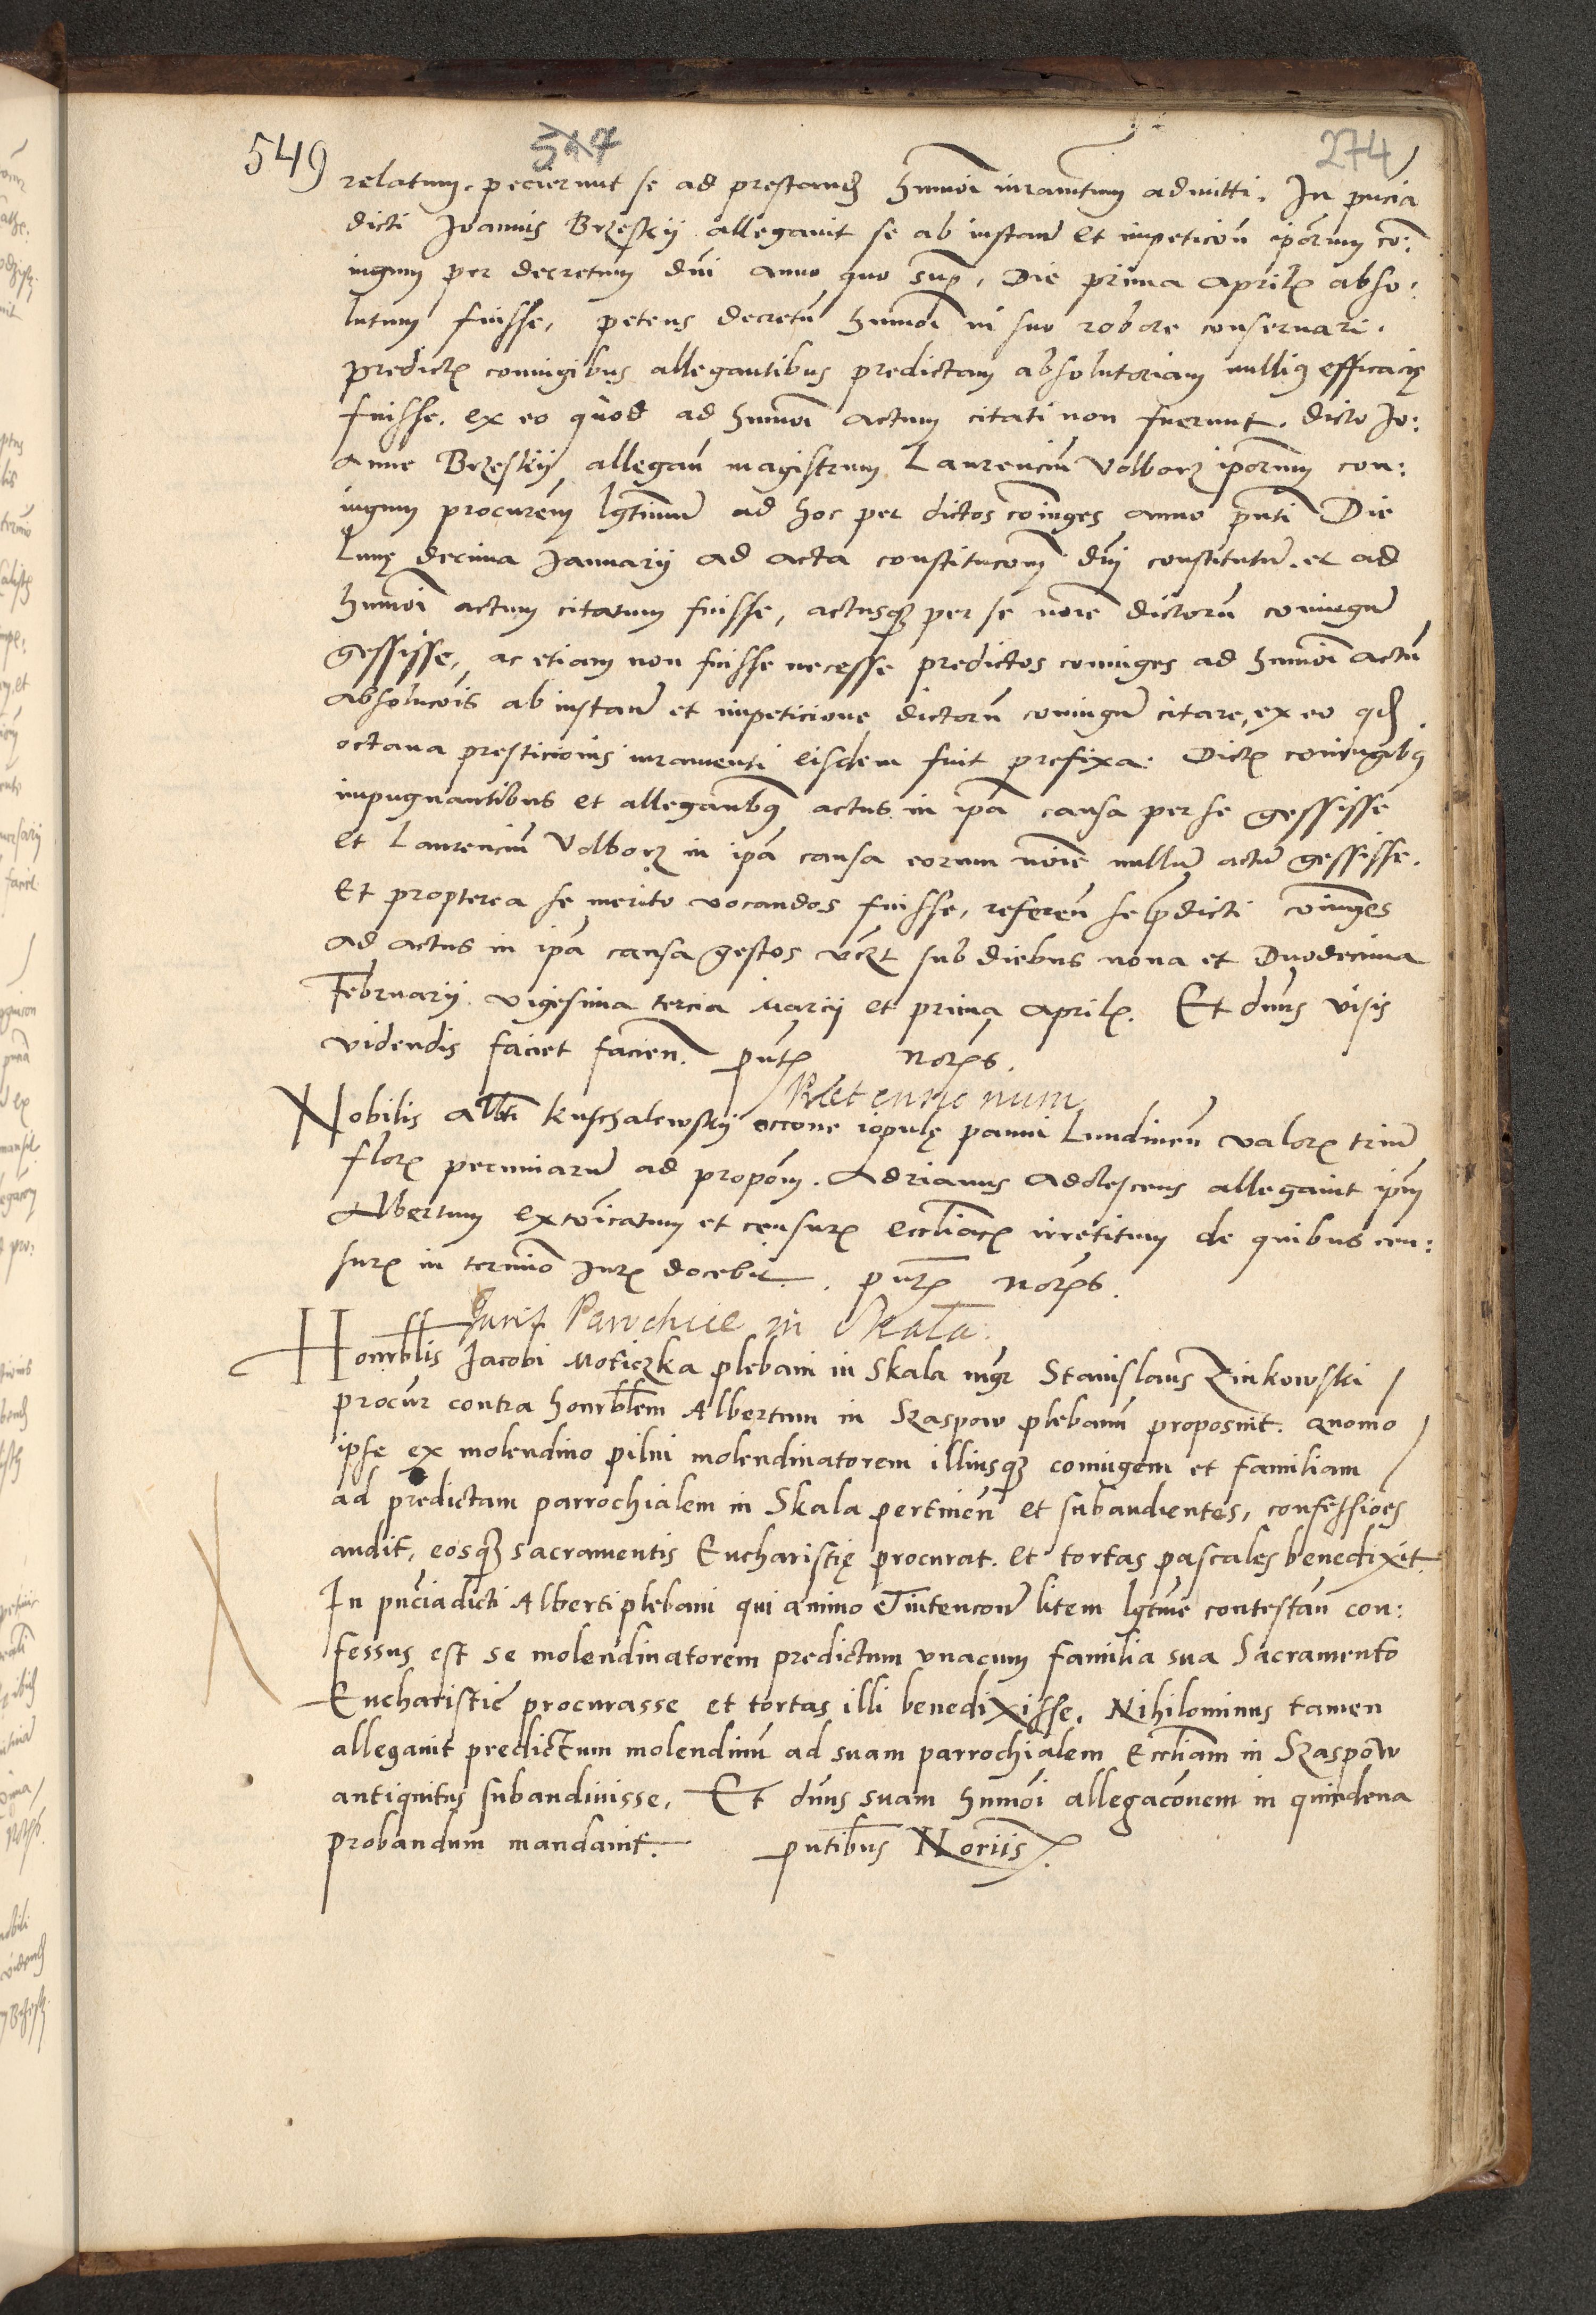 549 547 274
relatum. pecierunt se ad prestand hmnoi iuramtum admitti. In pncia
dicti Joannis Brzeskij allegauit se ab instan et impeticon ipor̄um co:
iugum per decretum dni anno quo sup, Die prima Aprilis abso:
lutum fuisse, petens decretu hmnoi in suo robore conseruari.
predictis coniugibus allegantibus predictam absolutoriam nulliq efficacię
fuisse. ex eo quod ad hmnoi actum citati non fuerunt. dicto Jo:
anne Brzeskij allegan magistrum Laurenciu Volborz ipor̄um con:
iugum procurem lgtimum ad hoc per dictos coiuges anno pnti Die
Lunę decima Januarij ad acta constitucom dni constitutu. et ad
hmnoi actum citatum fuisse, actusq per se noie dictoru coniugu
gessisse, ac etiam non fuisse necesse predictos coniuges ad hmnoi actu
absolucois ab instan et impeticione dictoru coniugu citare, ex eo qd
octaua presticionis iuramenti eisdem fuit prefixa. Dictis coniugibq
impugnantibus et allegantibq actus in ipa causa per se gessisse
et Laurenciu Volborz in ipa causa eorum noie nullu actu gessisse.
Et propterea se merito vocandos fuisse, referen se pdicti coiuges
ad actus in ipa causa gestos vczt sub diebus nona et Duodecima
Februarij. vigesima tercia Marcij et prima Aprilis. Et dnus visis
videndis faciet facien. pntis Noris.
Retencionum
Nobilis Albti Kuschalewskij occone iopulę panni Lundinen valoris triu
floris pecuniaru ad propom. Adrianus Adolescens allegauit ipm
Albertum exco͞icatum et censuris eccliacis irretitum de quibus cen:
suris in termino Juris docebit. pntis Noris.
Juris Parochiae in Skala.
Honrblis Jacobi Moticzka plebani in Skala mgr Stanislaus Zinkowski
procur contra honrblem Albertum in Szaspow plebanu proposuit. quomo
ipse ex molendino pilni molendinatorem illiusq coniugem et familiam
ad predictam parrochialem in Skala pertinen et subaudientes, confessioes
audit, eosq sacramentis Eucharistię procurat. et tortas pascales benedixit.
In pncia dicti Alberti plebani qui animo et intencone litem lgtme contestan con:
fessus est se molendinatorem predictum vnacum familia sua Sacramento
Eucharistie procurasse et tortas illi benedixisse. Nihilominus tamen
allegauit predictum molendinu ad suam parrochialem Eccliam in Szaspow
antiquitus subaudiuisse. Et dnus suam hmnoi allegaconem in quindena
probandum mandauit. pntibus Noriis.